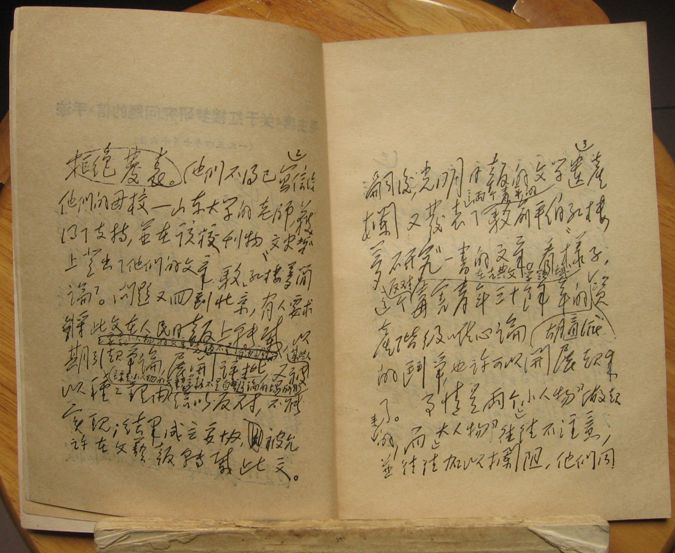 拒绝發表。他们不得已写信给
他们的母校—山东大学的老师,获
得了支持,並在该校刊物“文史哲”
上登出了他们的文章驳“红楼梦简
论”。问题又回到北京,有人要求
将此文在人民日报上转载,以
期引起争论,展开批评,又被某些人
以种种理由(主要是“小人物的文章”,“党报不是自由辩论的场所”)给以反对,不能
实现;结果成立妥协,被允
许在文艺报转载此文。
嗣后,光明日报的文学遗产
栏又發表了这两个青年的驳俞平伯“红楼
梦研究”一书的文章。看样子,
这个反对在古典文学领域毒害青年三十馀年的胡适派资
产阶级唯心论
的鬥争,也许可以开展起来
了。事情是两个“小人物”做起
来的,而“大人物”往往不注意,
並往往加以攔阻,他们同